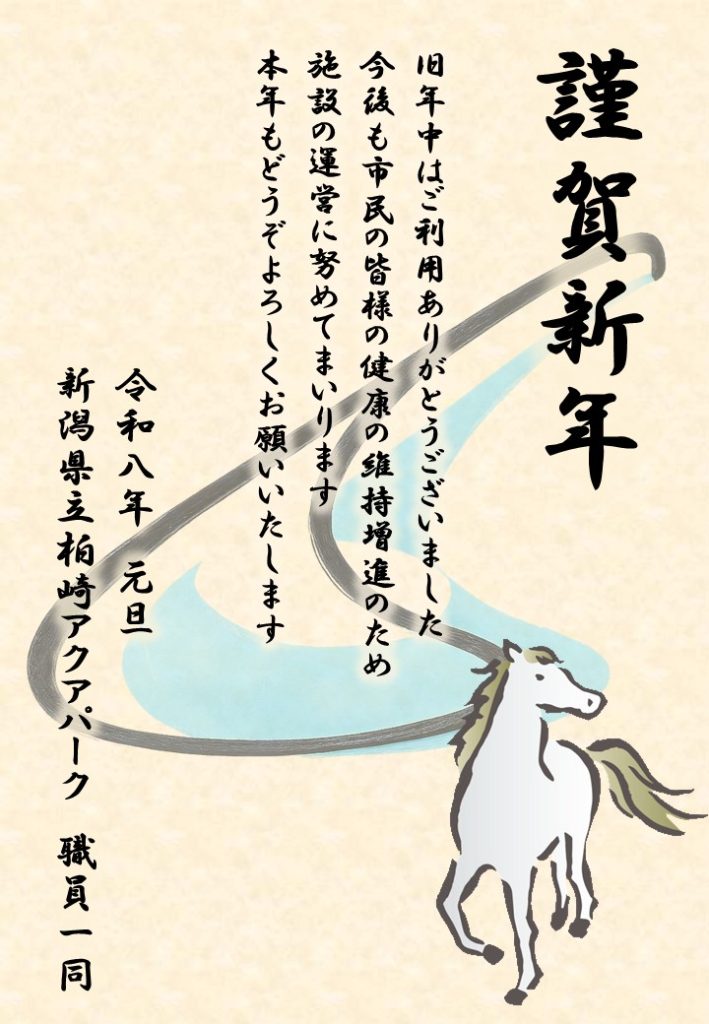 謹賀新年
旧年中はご利用ありがとうございました
今後も市民の皆様の健康の維持増進のため
施設の運営に努めてまいります
本年もどうぞよろしくお願いいたします
令和八年　元旦
新潟県立柏崎アクアパーク　職員一同